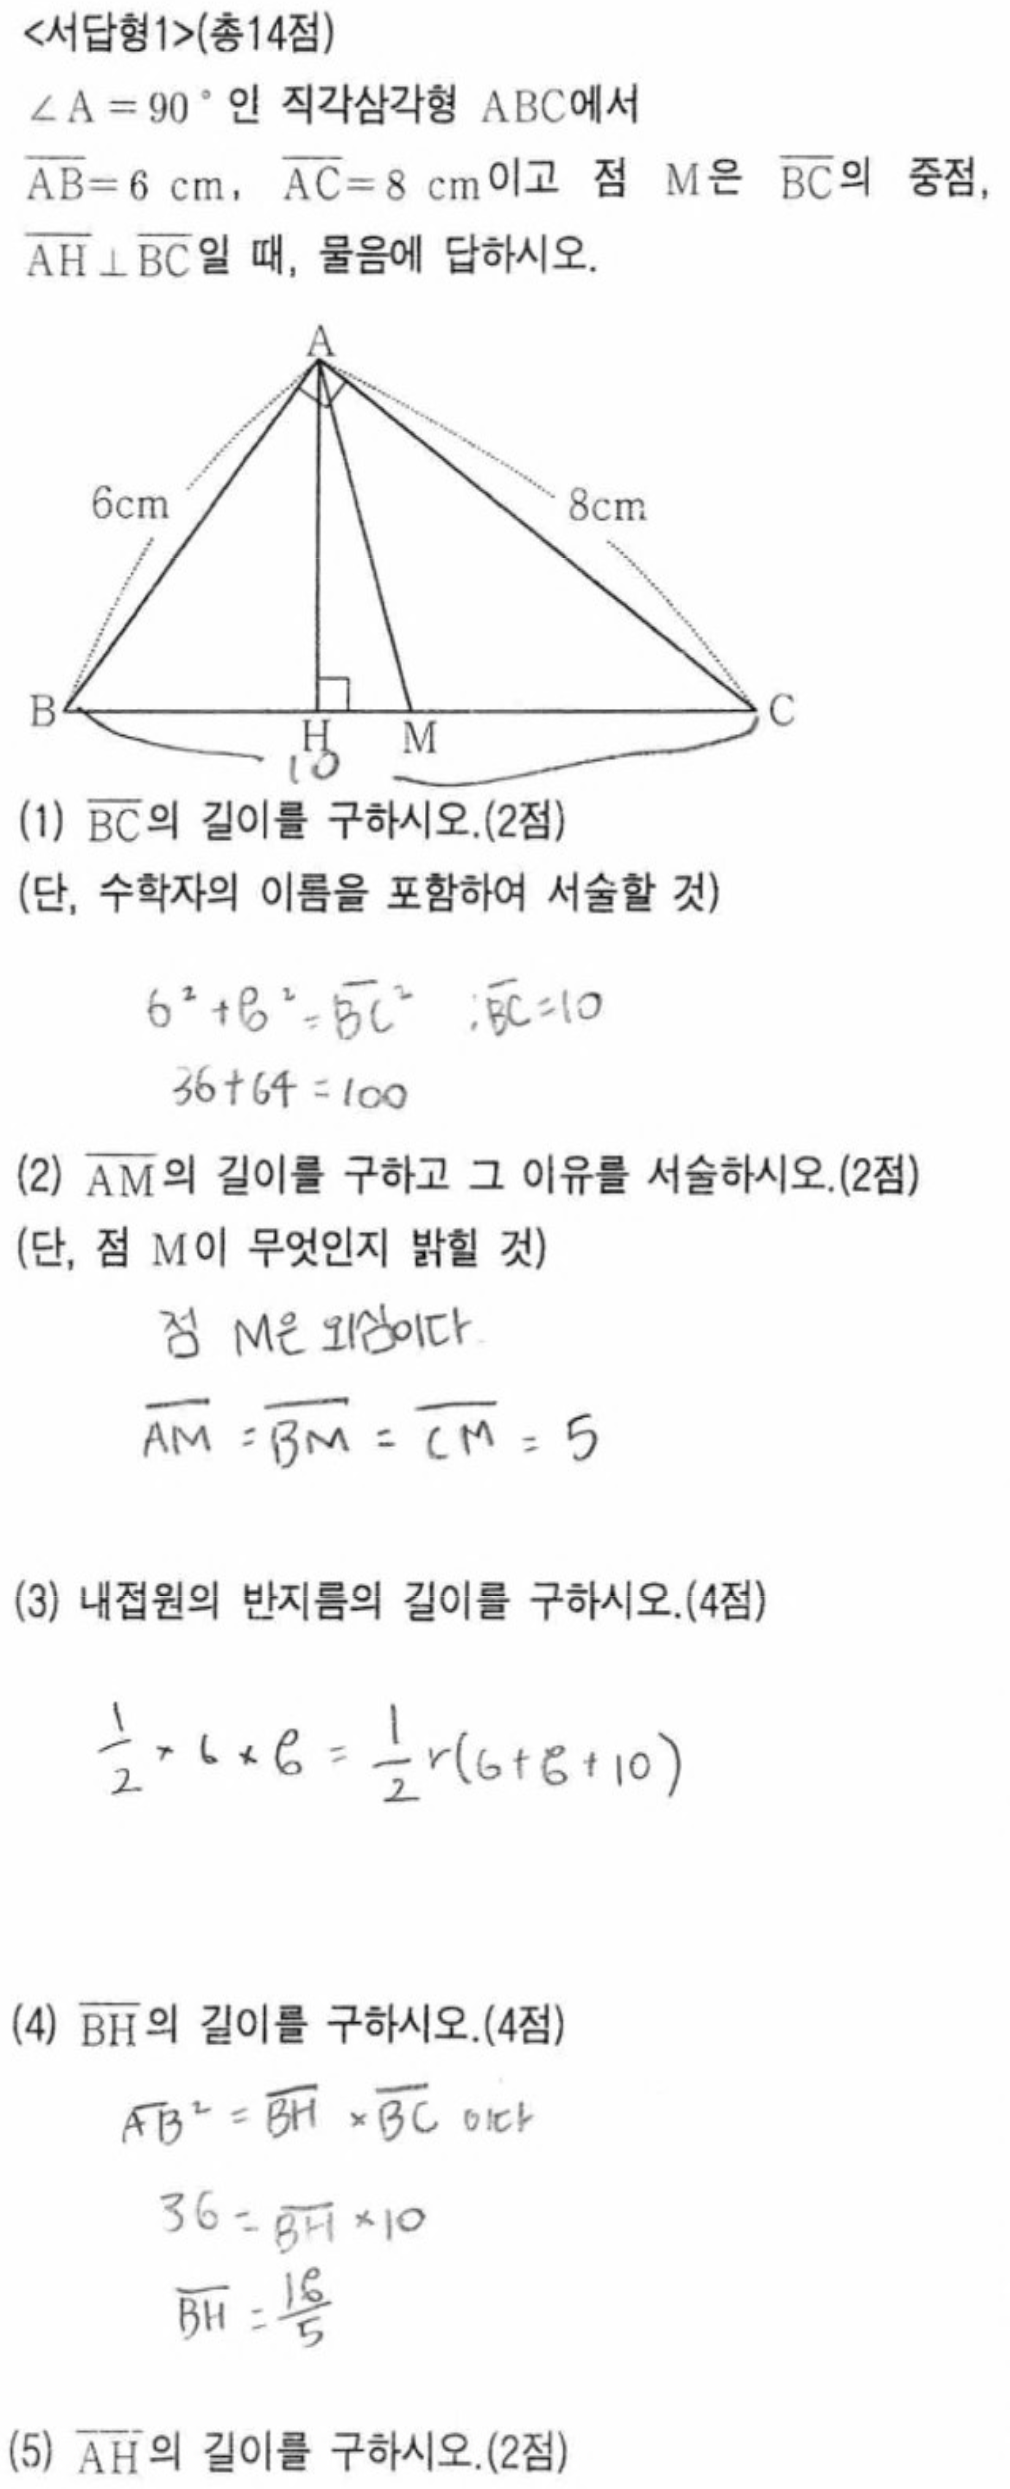 <서답형1>(총14점)
∠A = 90°인 직각삼각형 ABC에서
AB = 6 cm, AC = 8 cm이고 점 M은 BC의 중점,
AH⊥BC일 때, 물음에 답하시오.
A
6cm
8cm
B
H
M
C
10
(1) BC의 길이를 구하시오.(2점)
(단, 수학자의 이름을 포함하여 서술할 것)
6² + 8² = BC² ∴BC = 10
36+64 = 100
(2) AM의 길이를 구하고 그 이유를 서술하시오.(2점)
(단, 점 M이 무엇인지 밝힐 것)
점 M은 외심이다
AM = BM = CM = 5
(3) 내접원의 반지름의 길이를 구하시오.(4점)
1/2 × 6 × 8 = 1/2 r(6+8+10)
(4) BH의 길이를 구하시오.(4점)
AB² = BH × BC 이다
36 = BH × 10
BH = 18/5
(5) AH의 길이를 구하시오.(2점)